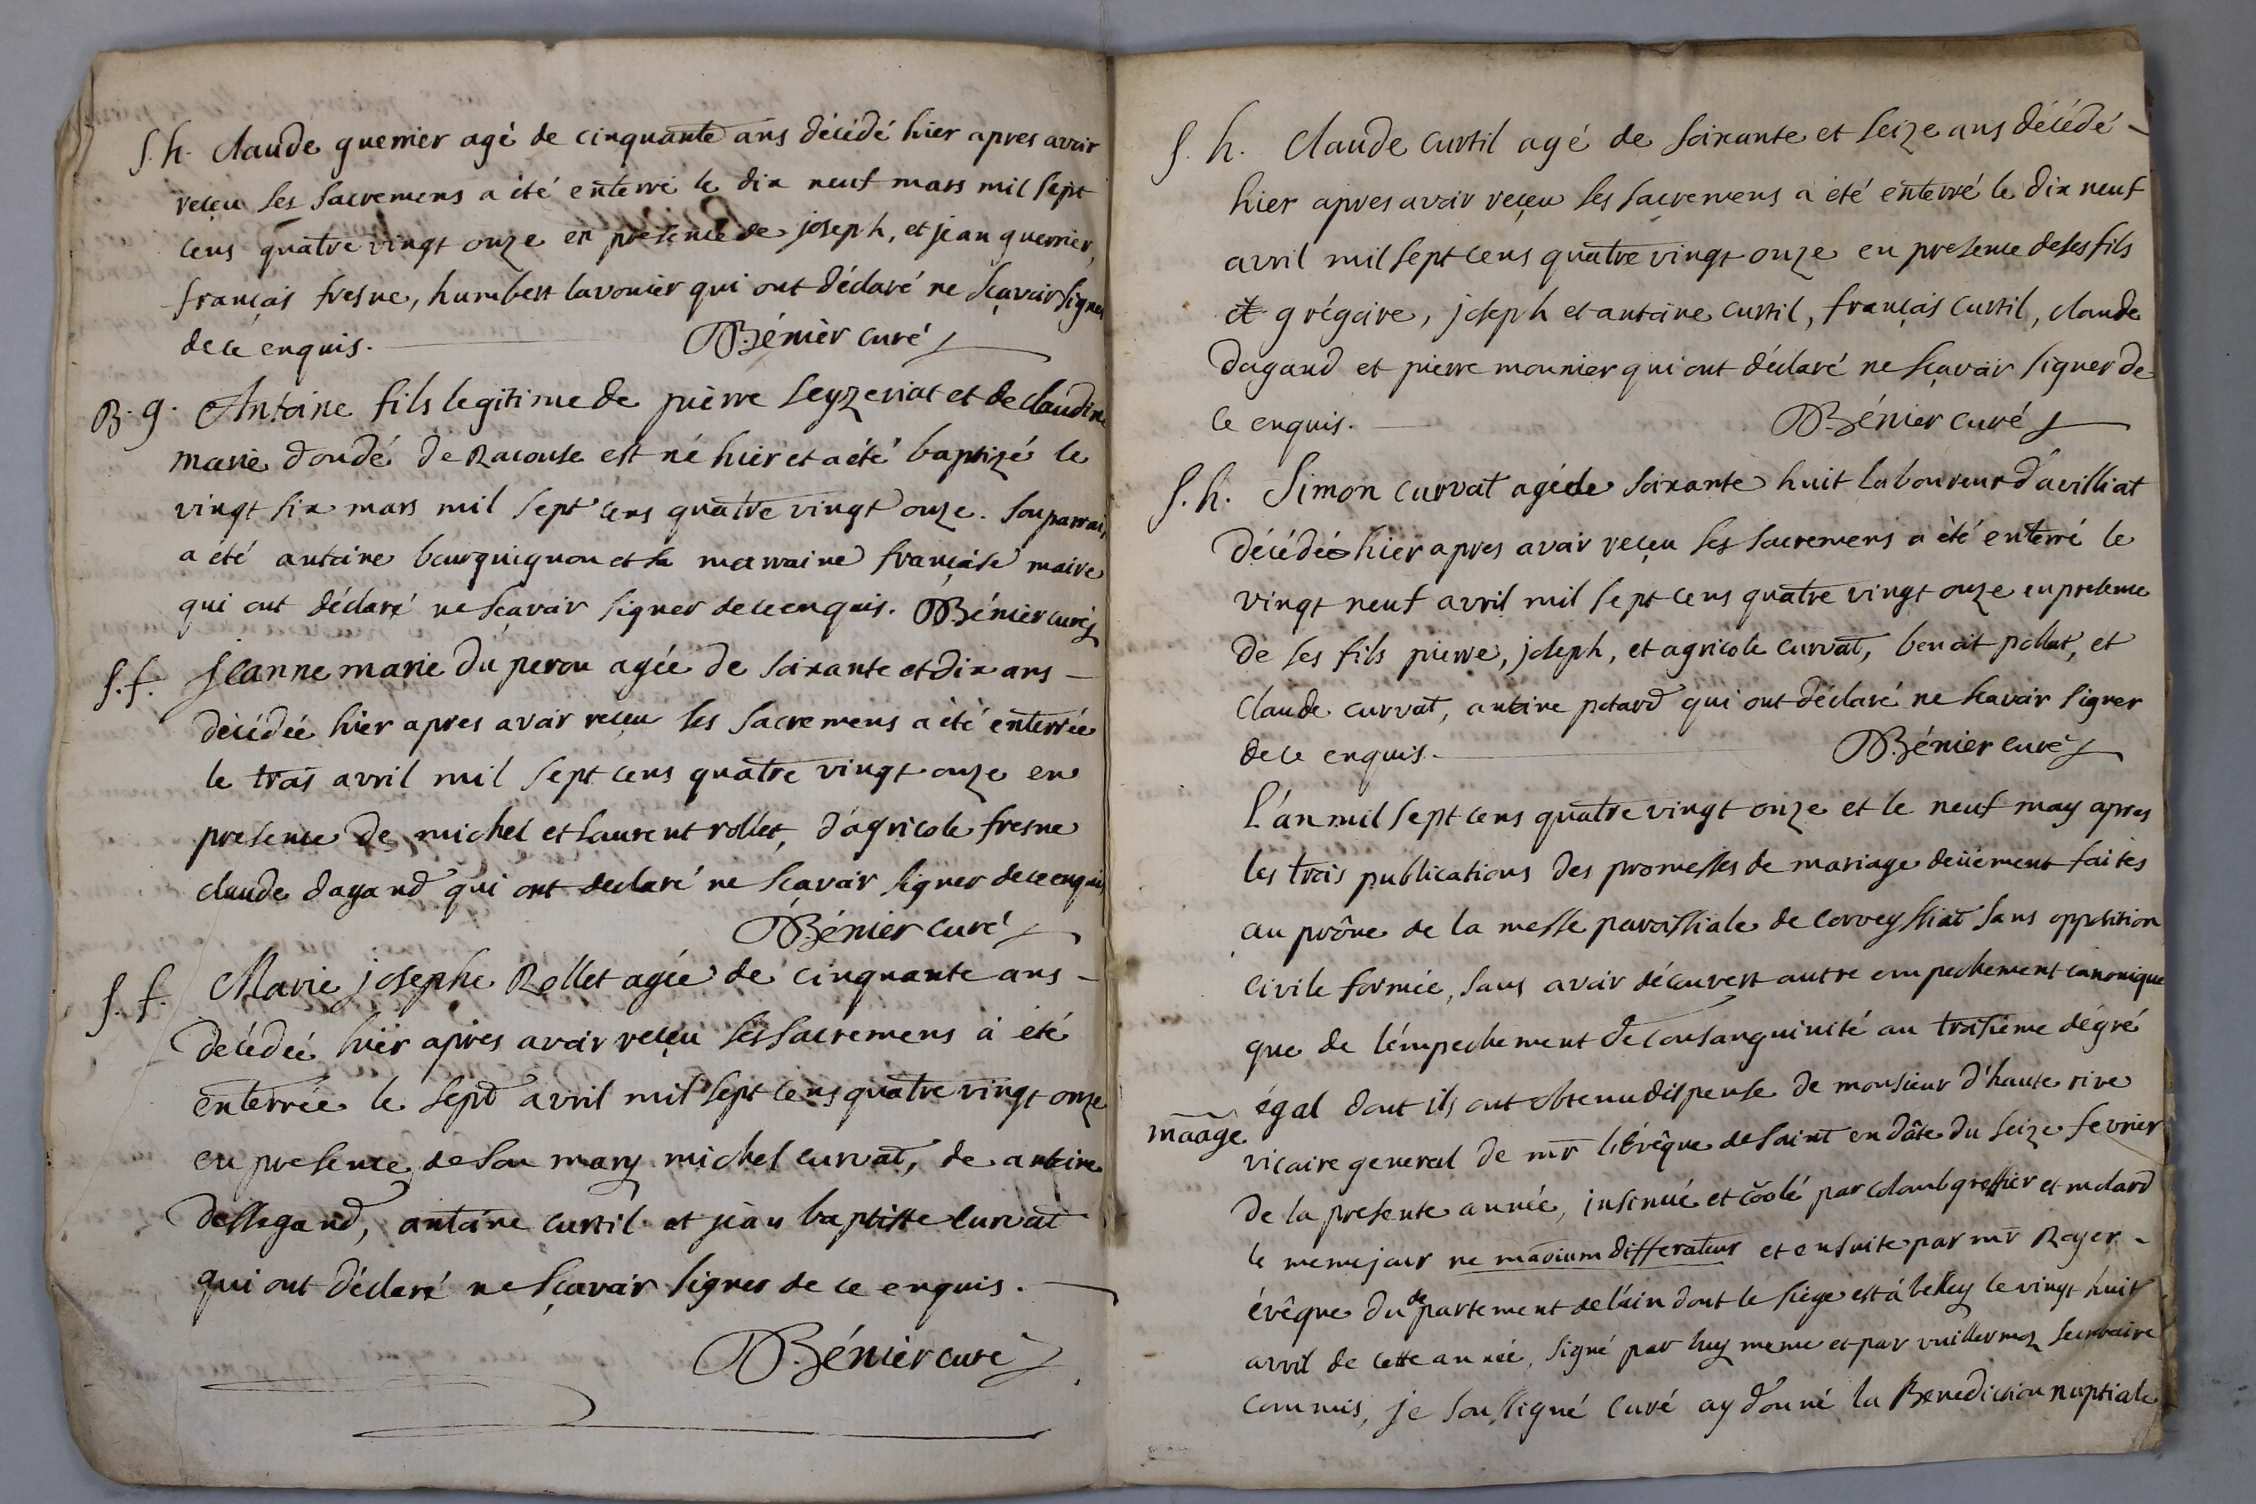 S. h. Claude guerrier agé de cinquante ans décédé hier apres avoir
reçeu les Sacremens a été enterré le dix neuf mars mil sept
cens quatre vingt onze en presence de joseph, et jean guerrier,
français fresne, humbert lavonier qui ont déclaré ne sçavoir signer
de ce enquis. Bénier curé
B. g. Antoine fils legitime de pièrre Seyzeriat et de claudine
marie dondé de Racouse est né hier et a été baptizé le
vingt six mars mil sept cens quatre vingt onze. Son parrain
a été antoine bourguignon et sa marraine française maire
qui ont déclaré ne sçavoir signer de ce enquis. Bénier curé
S. f. Jeanne marie du perou agée de soixante et dix ans
décédée hier apres avoir reçeu les sacremens a été enterrée
le trois avril mil sept cens quatre vingt onze en
presence de michel et Laurent rollet, d'agricole fresne
claude dagand qui ont declaré ne sçavoir signer de ce enquis
Bénier curé
S. f. Marie josephe Rollet agée de cinquante ans
décédée hier apres avoir reçeu les sacremens a été
enterrée le sept avril mil sept cens quatre vingt onze
en presence de son mary michel curvat, de antoine
dessegand, antoine curtil et jean baptiste curvat
qui ont déclaré ne sçavoir signer de ce enquis.
Bénier curé
S. h. Claude curtil agé de soixante et seize ans décédé
hier apres avoir reçeu les sacremens a été enterré le dix neuf
avril mil sept cens quatre vingt onze en presence de ses fils
et grégoire, joseph et antoine curtil, français curtil, claude
dagand et pierre mounier qui ont déclaré ne sçavoir signer de
ce enquis. Bénier curé
S. h. Simon curvat agé de soixante huit laboureur d'avilliat
décédé hier apres avoir reçeu les sacremens a été enterré le
vingt neuf avril mil sept cens quatre vingt onze en presence
de ses fils pierre, joseph, et agricole curvat, benoit pollet, et
claude curvat, antoine potard qui ont déclaré ne scavoir signer
de ce enquis. Bénier curé
L'an mil sept cens quatre vingt onze et le neuf may apres
les trois publications des promesses de mariage deüement faites
au prône de la messe paroissiale de corveyssiat sans opposition
civile formée, sans avoir découvert autre empechement canonique
que de l'émpechement de consanguinité au troisiême dégré
égal dont ils ont obtenu dispense de monsieur d'haute rive
maage vicaire general de mr l'évêque de saint en dâte du seize fevrier
de la presente année, insinué et coolé par colomb greffier et molard
le meme jour ne maoium differatur et ensuite par mr Royer
évêque du departement de l'ain dont le siége est à belley le vingt huit
avril de cette année, signé par luy meme et par vuillermoz secretaire
commis, je soussigné curé ay donné la Benediction nuptiale